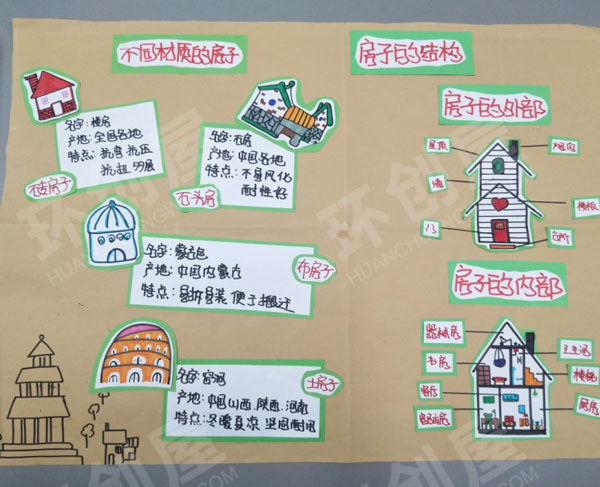 不同材质的房子
名字:楼房
产地:全国各地
特点:抗弯 抗压
砖房子
名字:石房
产地:中国各地
特点:不易风化
耐性好
石头房
名字:蒙古包
产地:中国内蒙古
特点:易拆易装 便于搬迁
布房子
名字:窑洞
产地:中国山西、陕西、河南
特点:冬暖夏凉 坚固耐用
土房子
房子的结构
房子的外部
屋顶
烟囱
墙
楼板
门
台阶
房子的内部
卫生间
书房
楼梯
客厅
厨房
环创屋